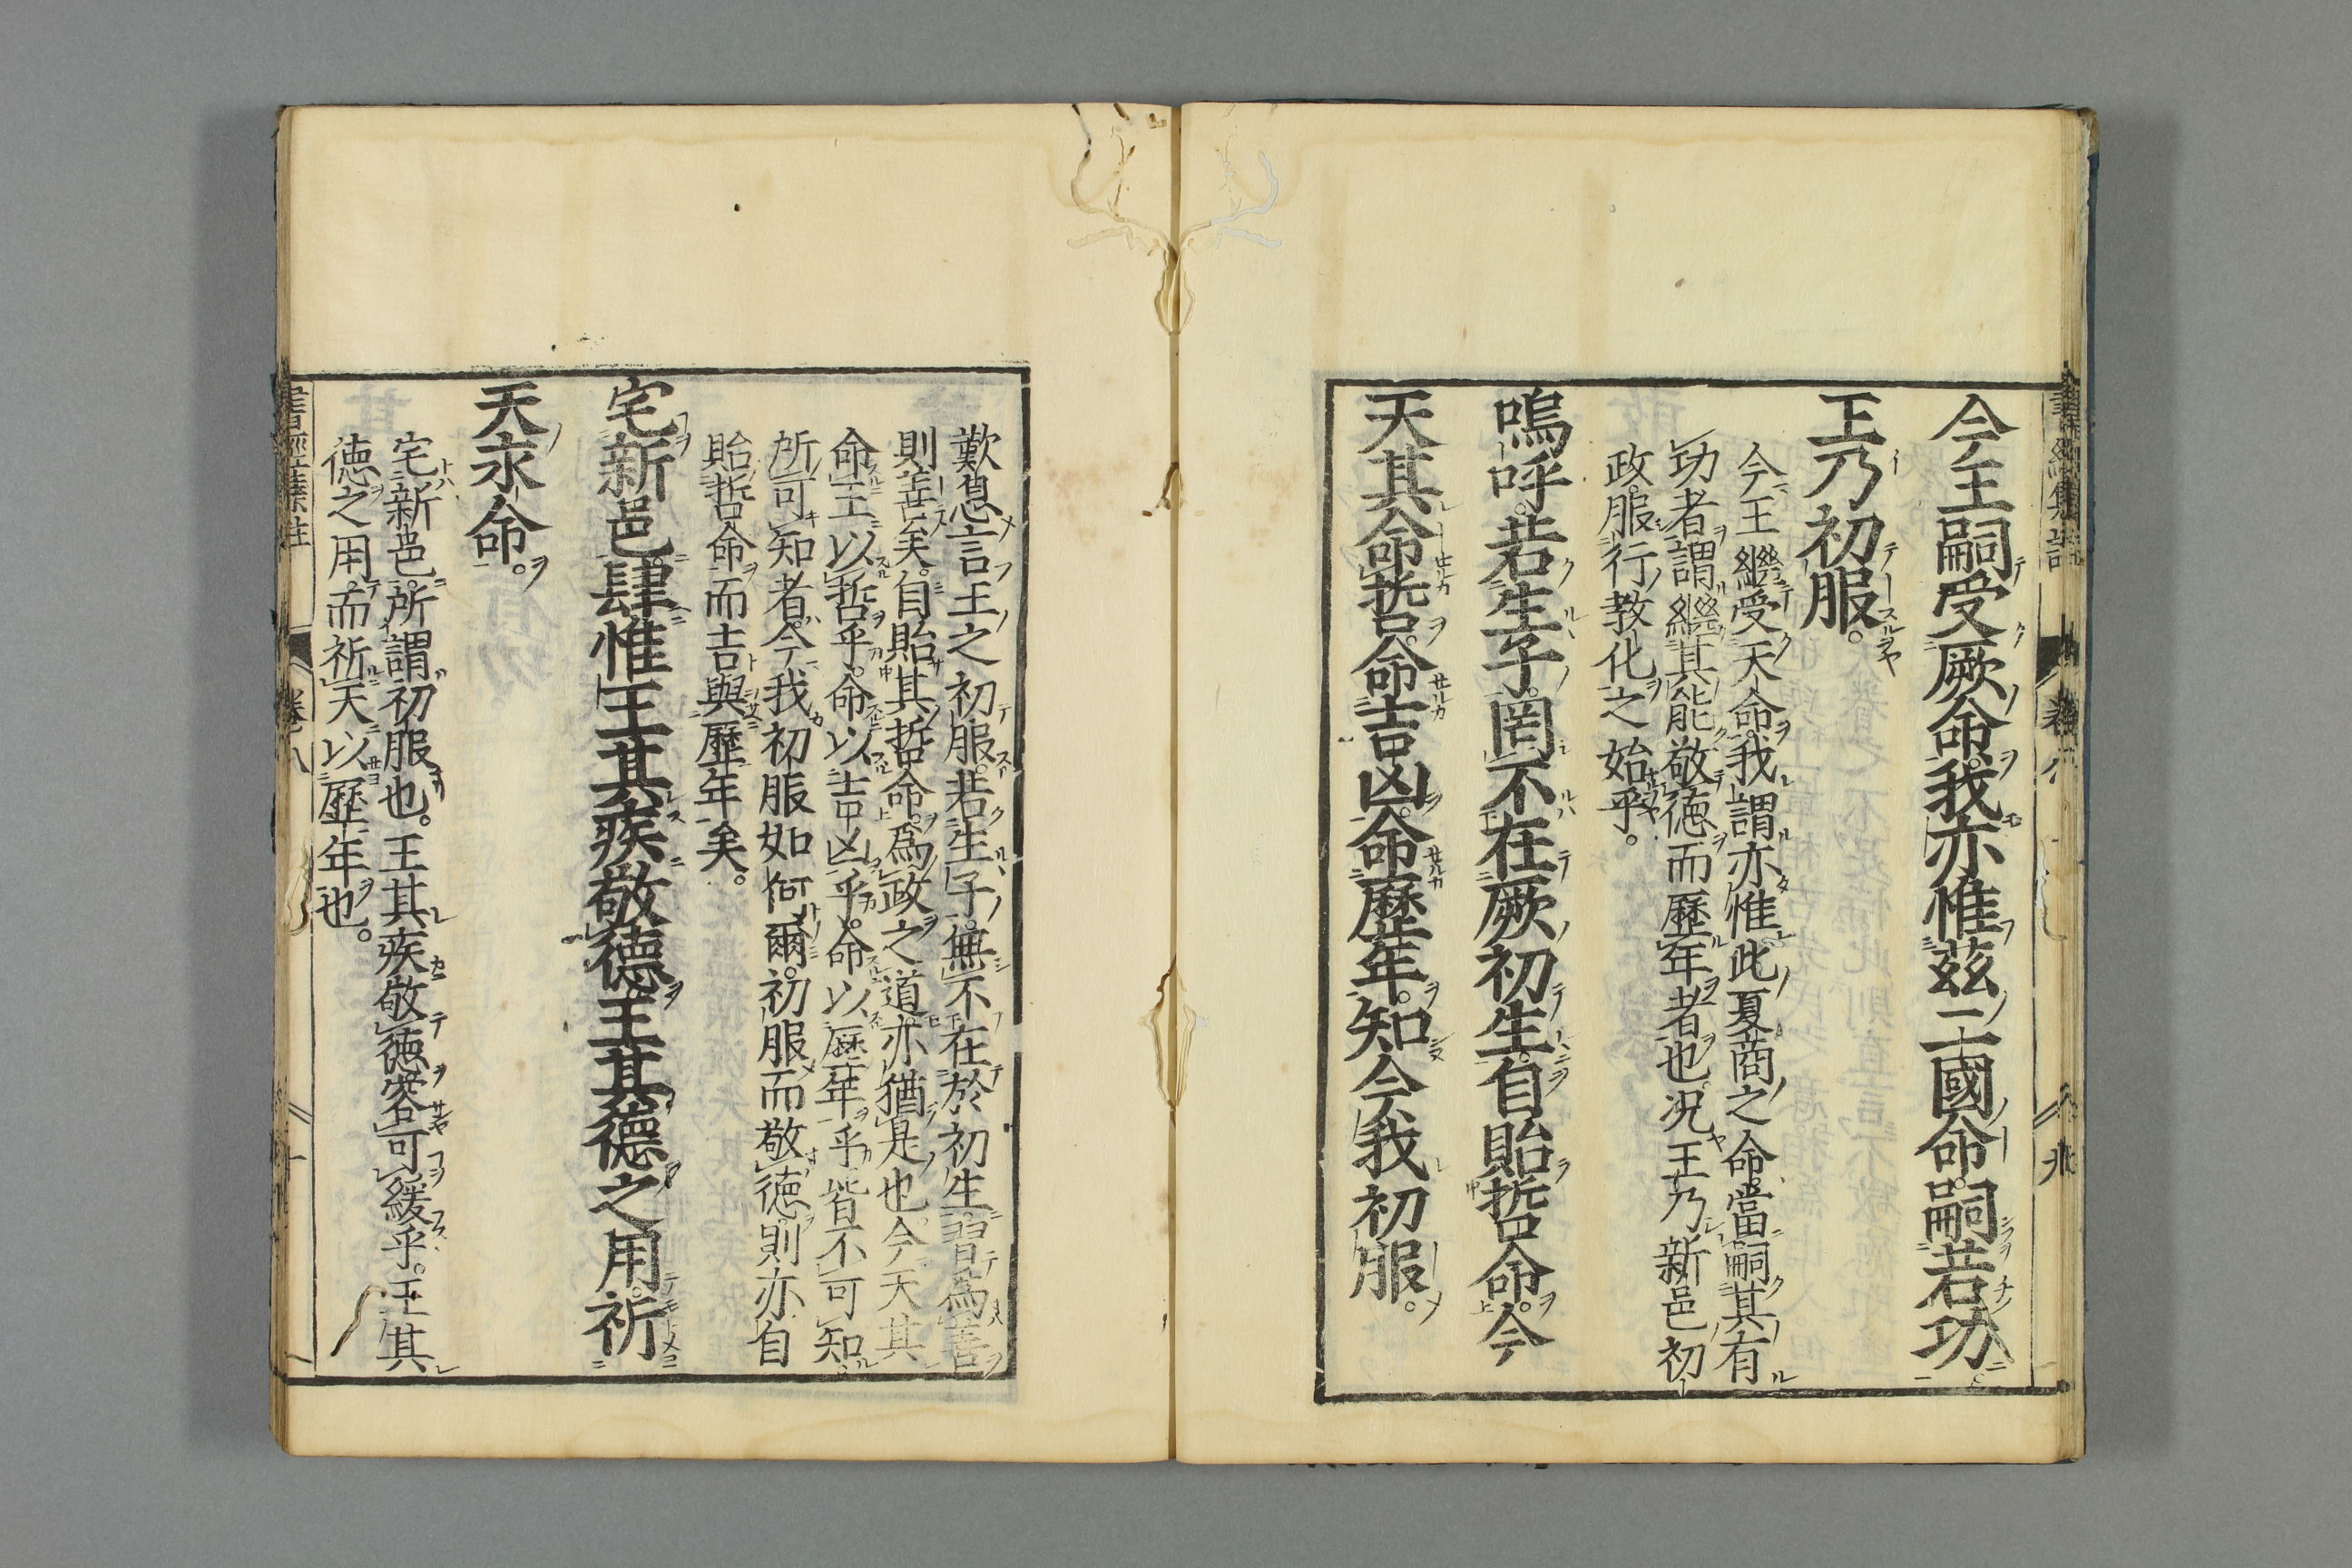 今王嗣受厥命。我亦惟茲二國命。嗣若功。
王乃初服。
今王繼受天命。我謂亦惟此夏商之命。當嗣其有
功者。謂繼其能敬德而歷年者也。况王乃新邑初
政。服行教化之始乎。
嗚呼。若生子。罔不在厥初生。自貽哲命。今
天其命哲。命吉凶。命歷年。知今我初服。
歎息言王之初服。若生子。無不在於初生。習爲善
則善矣。自貽其哲命。爲政之道。亦猶是也。今天其
命王以哲乎。命以吉凶乎。命以歷年乎。皆不可知。
所可知者。今我初服如何爾。初服而敬德。則亦自
貽哲命而吉與歷年矣。
宅新邑。肆惟王其疾敬德。王其德之用。祈
天永命。
宅新邑。所謂初服也。王其疾敬德。容可緩乎。王其
德之用。而祈天以歷年也。
卷八